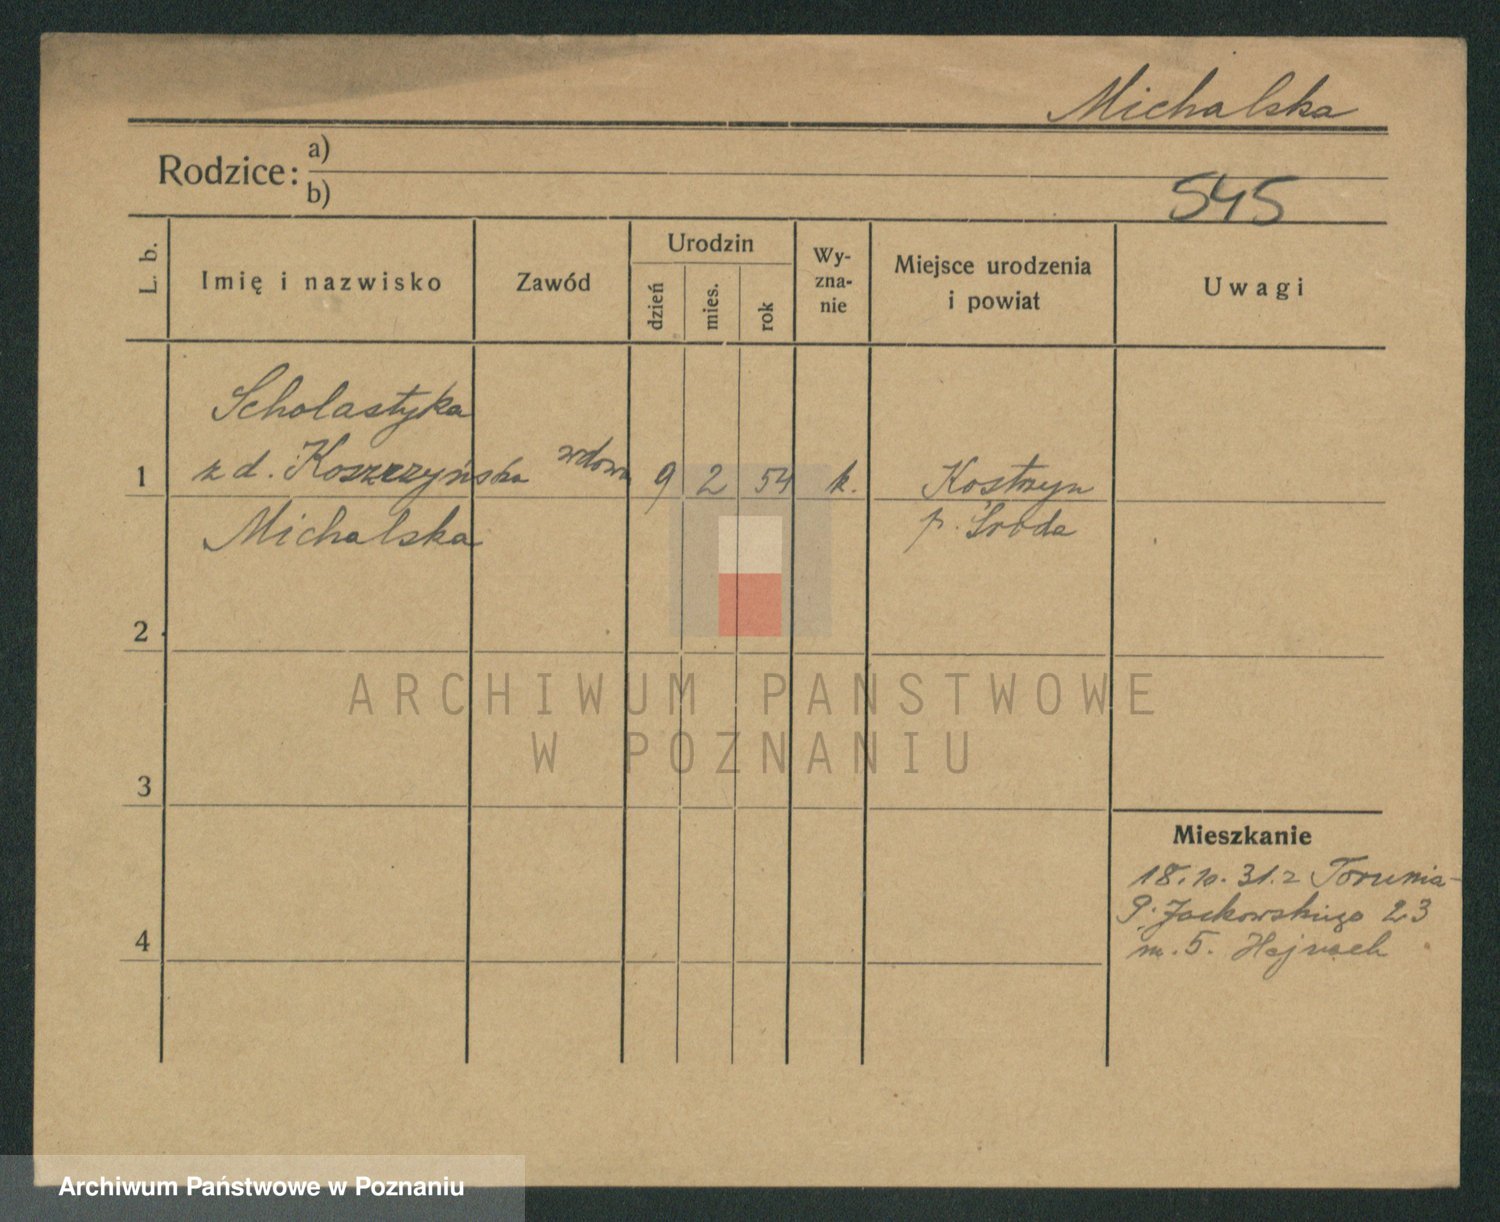 Michalska
Rodzice: a)
b)
545
L. b.
Imię i nazwisko
Zawód
Urodzin
dzień
mies.
rok
Wy-
zna-
nie
Miejsce urodzenia
i powiat
Uwagi
Scholastyka
1 z d. Koszczyńska wdowa 9 2 54 k. Kostrzyn
Michalska p. Środa
2
3
4
Mieszkanie
18.10.31. z Torunia-
Jackowskiego 23
m. 5.
ARCHIWUM PAŃSTWOWE
W POZNANIU
Archiwum Państwowe w Poznaniu